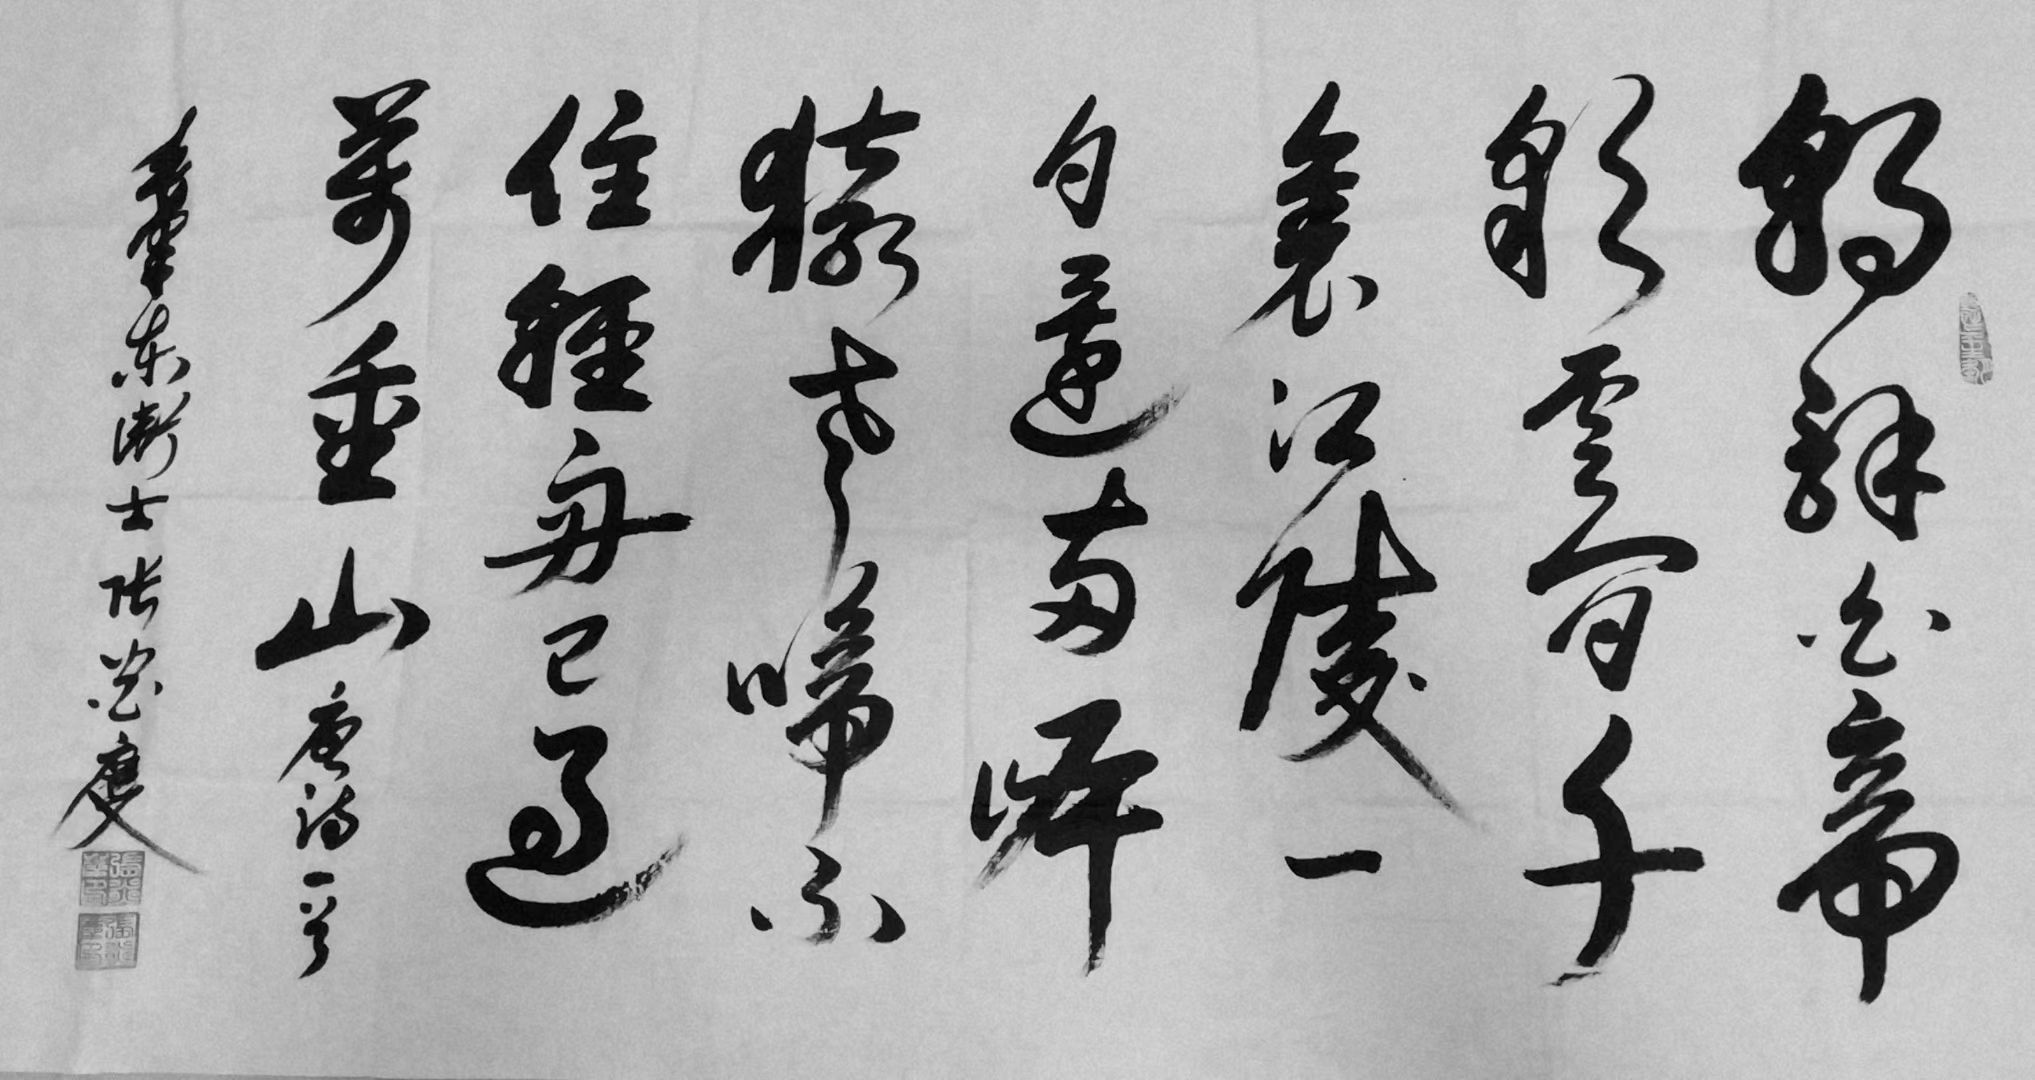 朝辭白帝
彩雲間千
裏江陵一
日還兩岸
猿聲啼不
住輕舟已過
萬重山 唐詩一首
东浙士張